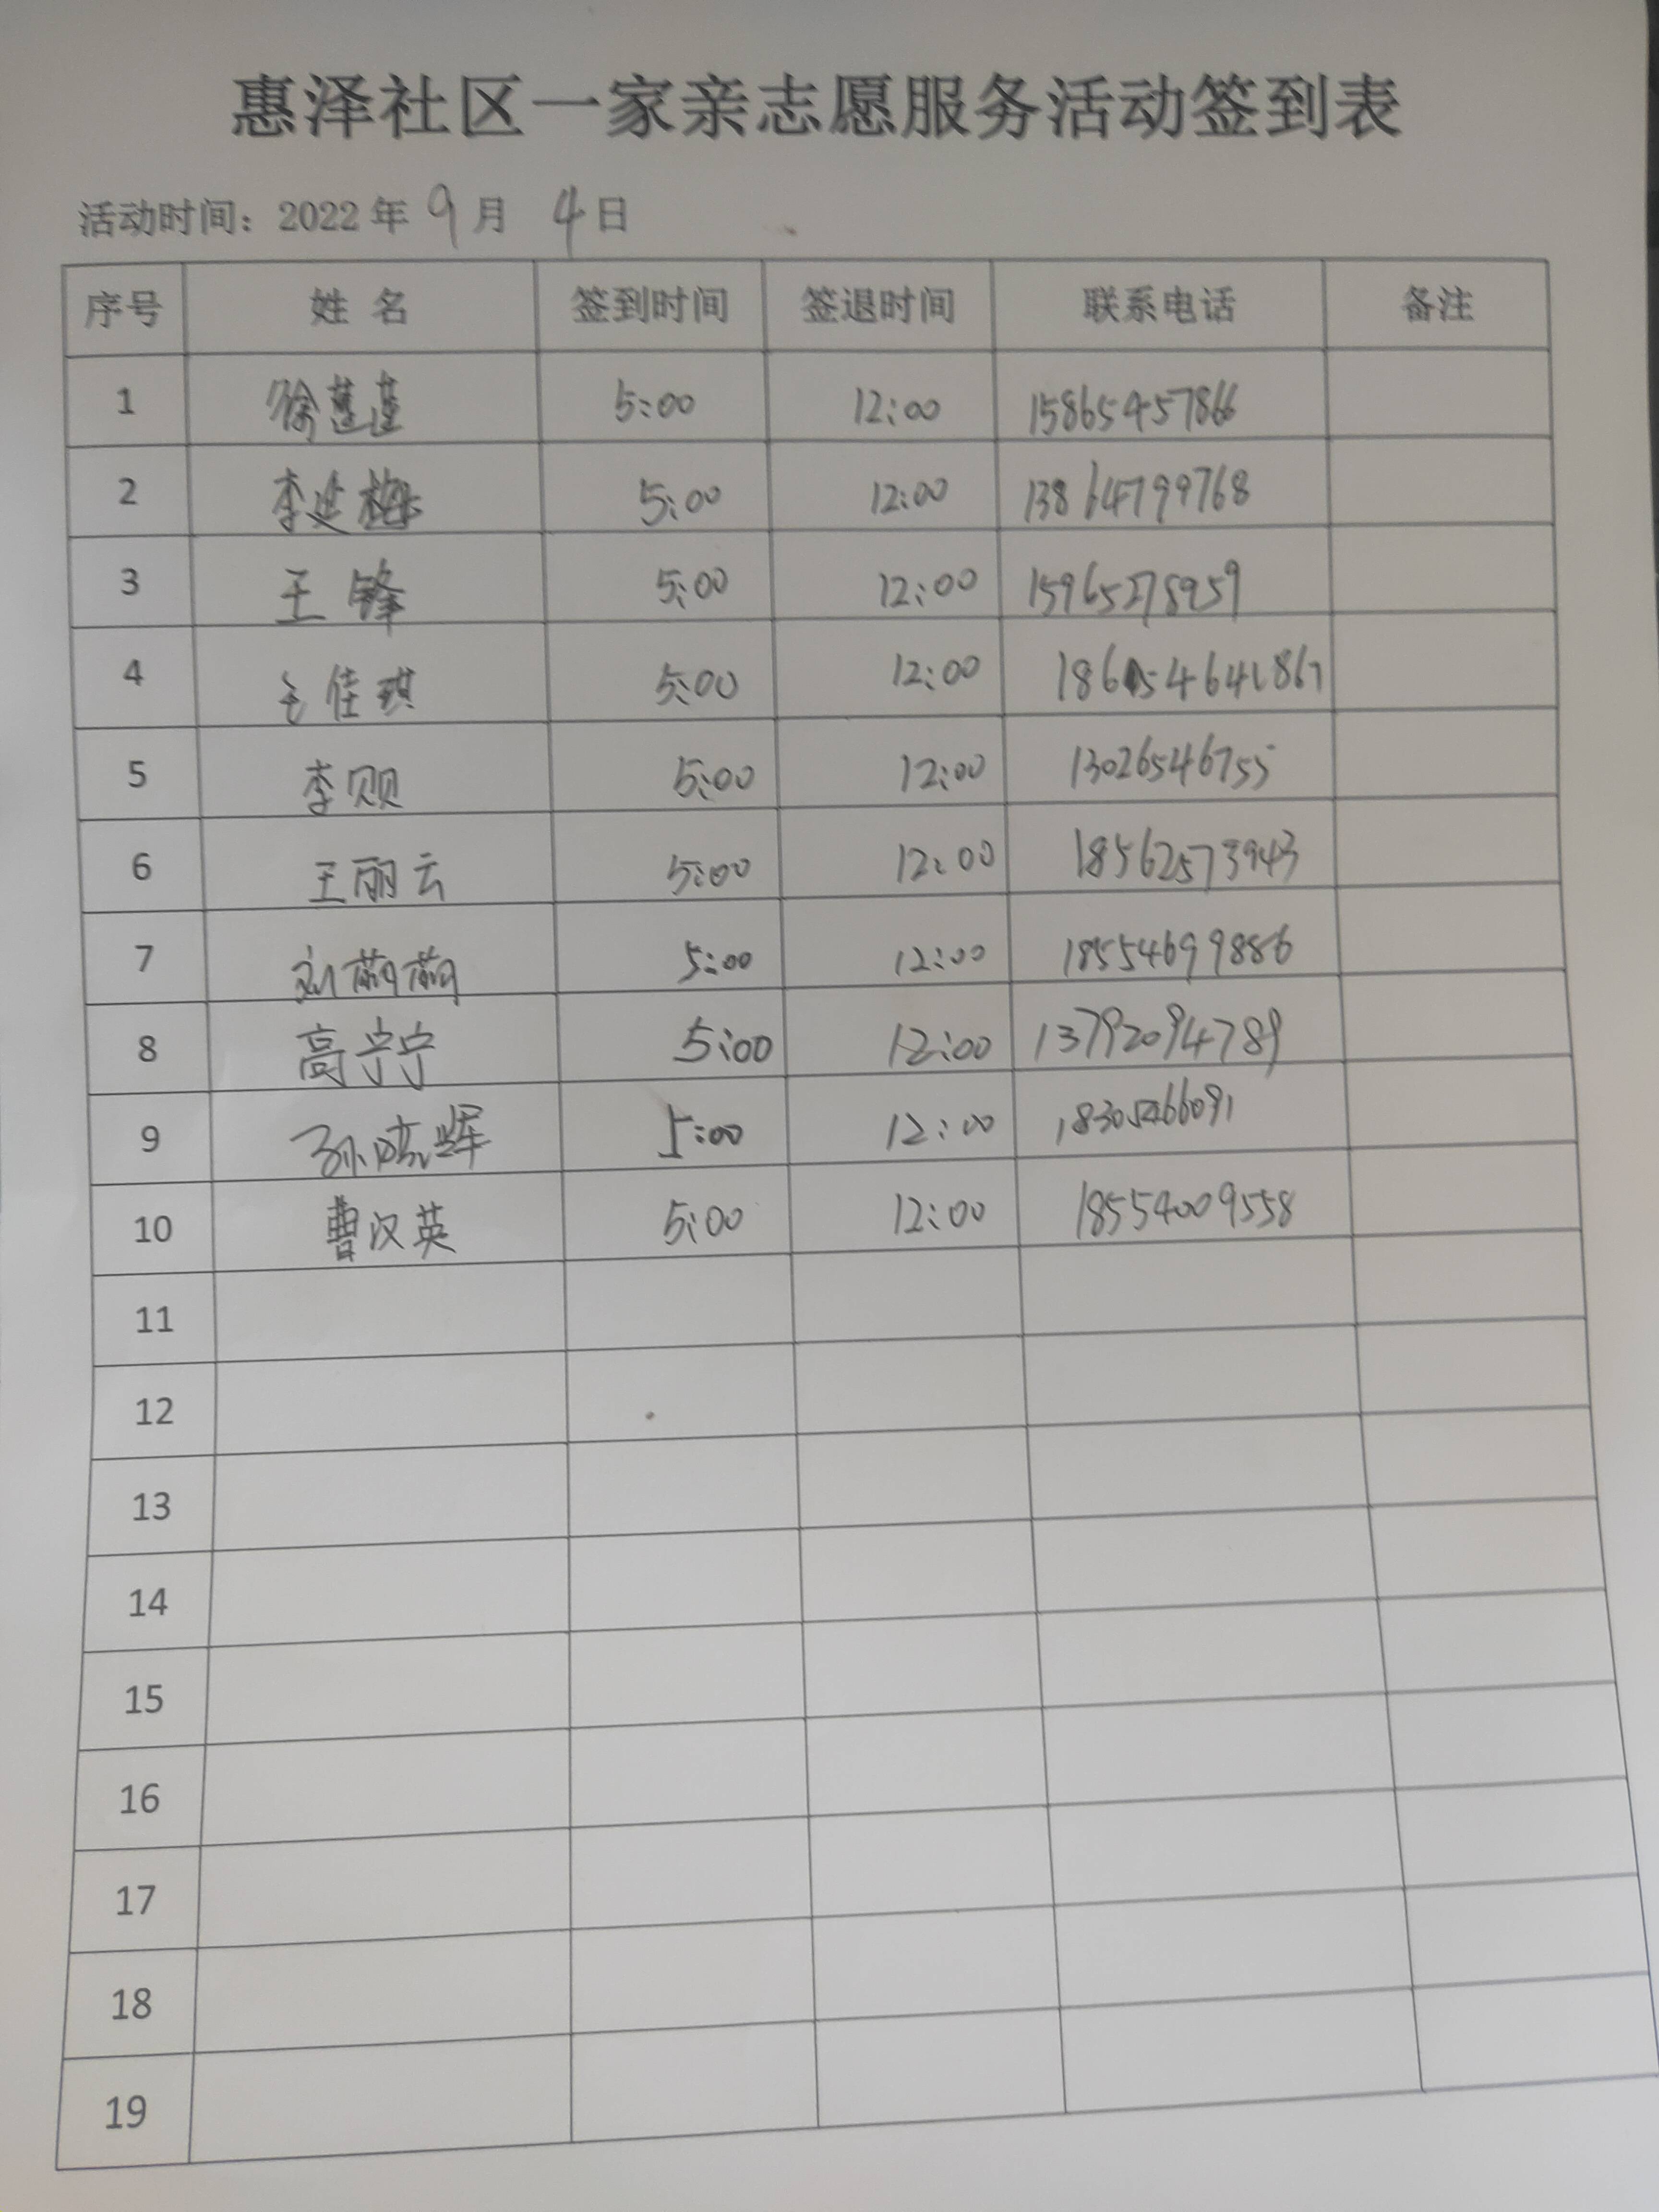 惠泽社区一家亲志愿服务活动签到表
活动时间：2022年 9月 4日
序号 姓 名 签到时间 签退时间 联系电话 备注
1 徐莲莲 5:00 12:00 15865457866
2 李延梅 5:00 12:00 13864799768
3 王锋 5:00 12:00 15965278959
4 王佳琪 5:00 12:00
5 李贝贝 5:00 12:00 13026546755
6 王丽云 5:00 12:00 18562573943
7 刘萌萌 5:00 12:00 18554699886
8 高宁宁 5:00 12:00 13792094789
9 孙晓辉 5:00 12:00 18305466091
10 曹汉英 5:00 12:00 18554009558
11
12
13
14
15
16
17
18
19